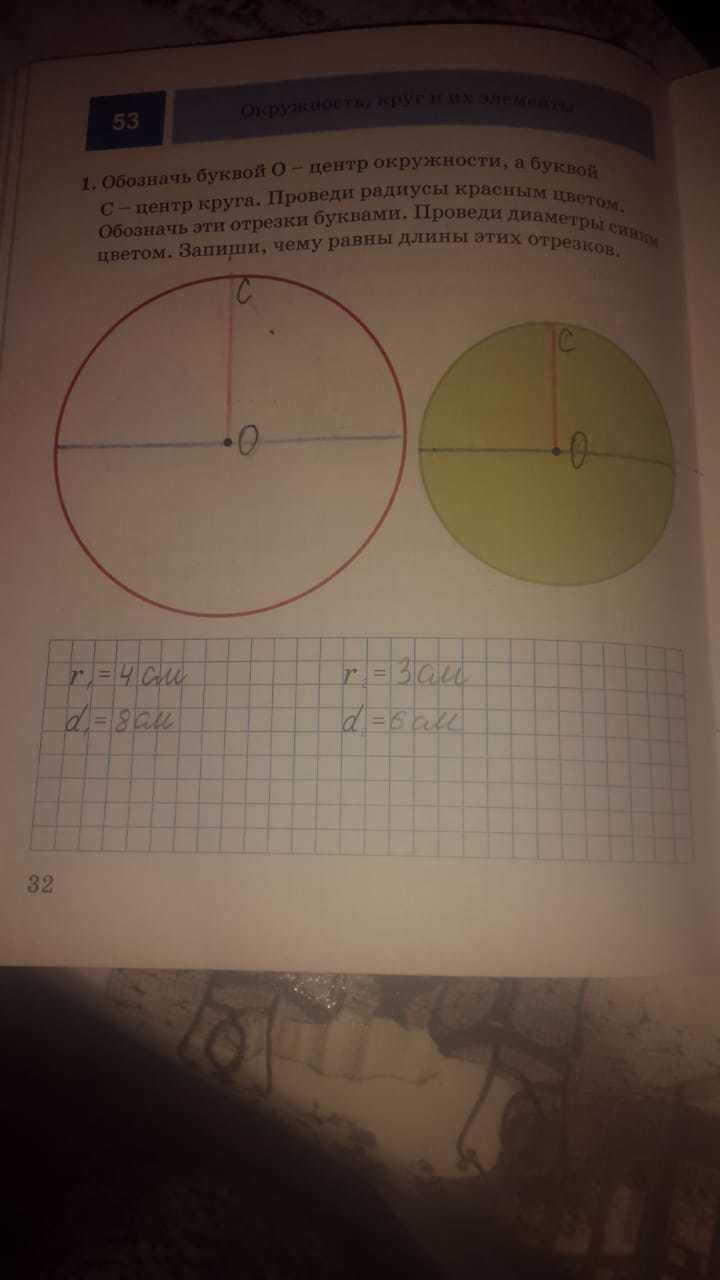 53
Окружность, круг и их элементы
1. Обозначь буквой О – центр окружности, а буквой
С – центр круга. Проведи радиусы красным цветом.
Обозначь эти отрезки буквами. Проведи диаметры синим
цветом. Запиши, чему равны длины этих отрезков.
С
С
О
О
r₁ = 4 см
r₂ = 3 см
d₁ = 8 см
d₂ = 6 см
32